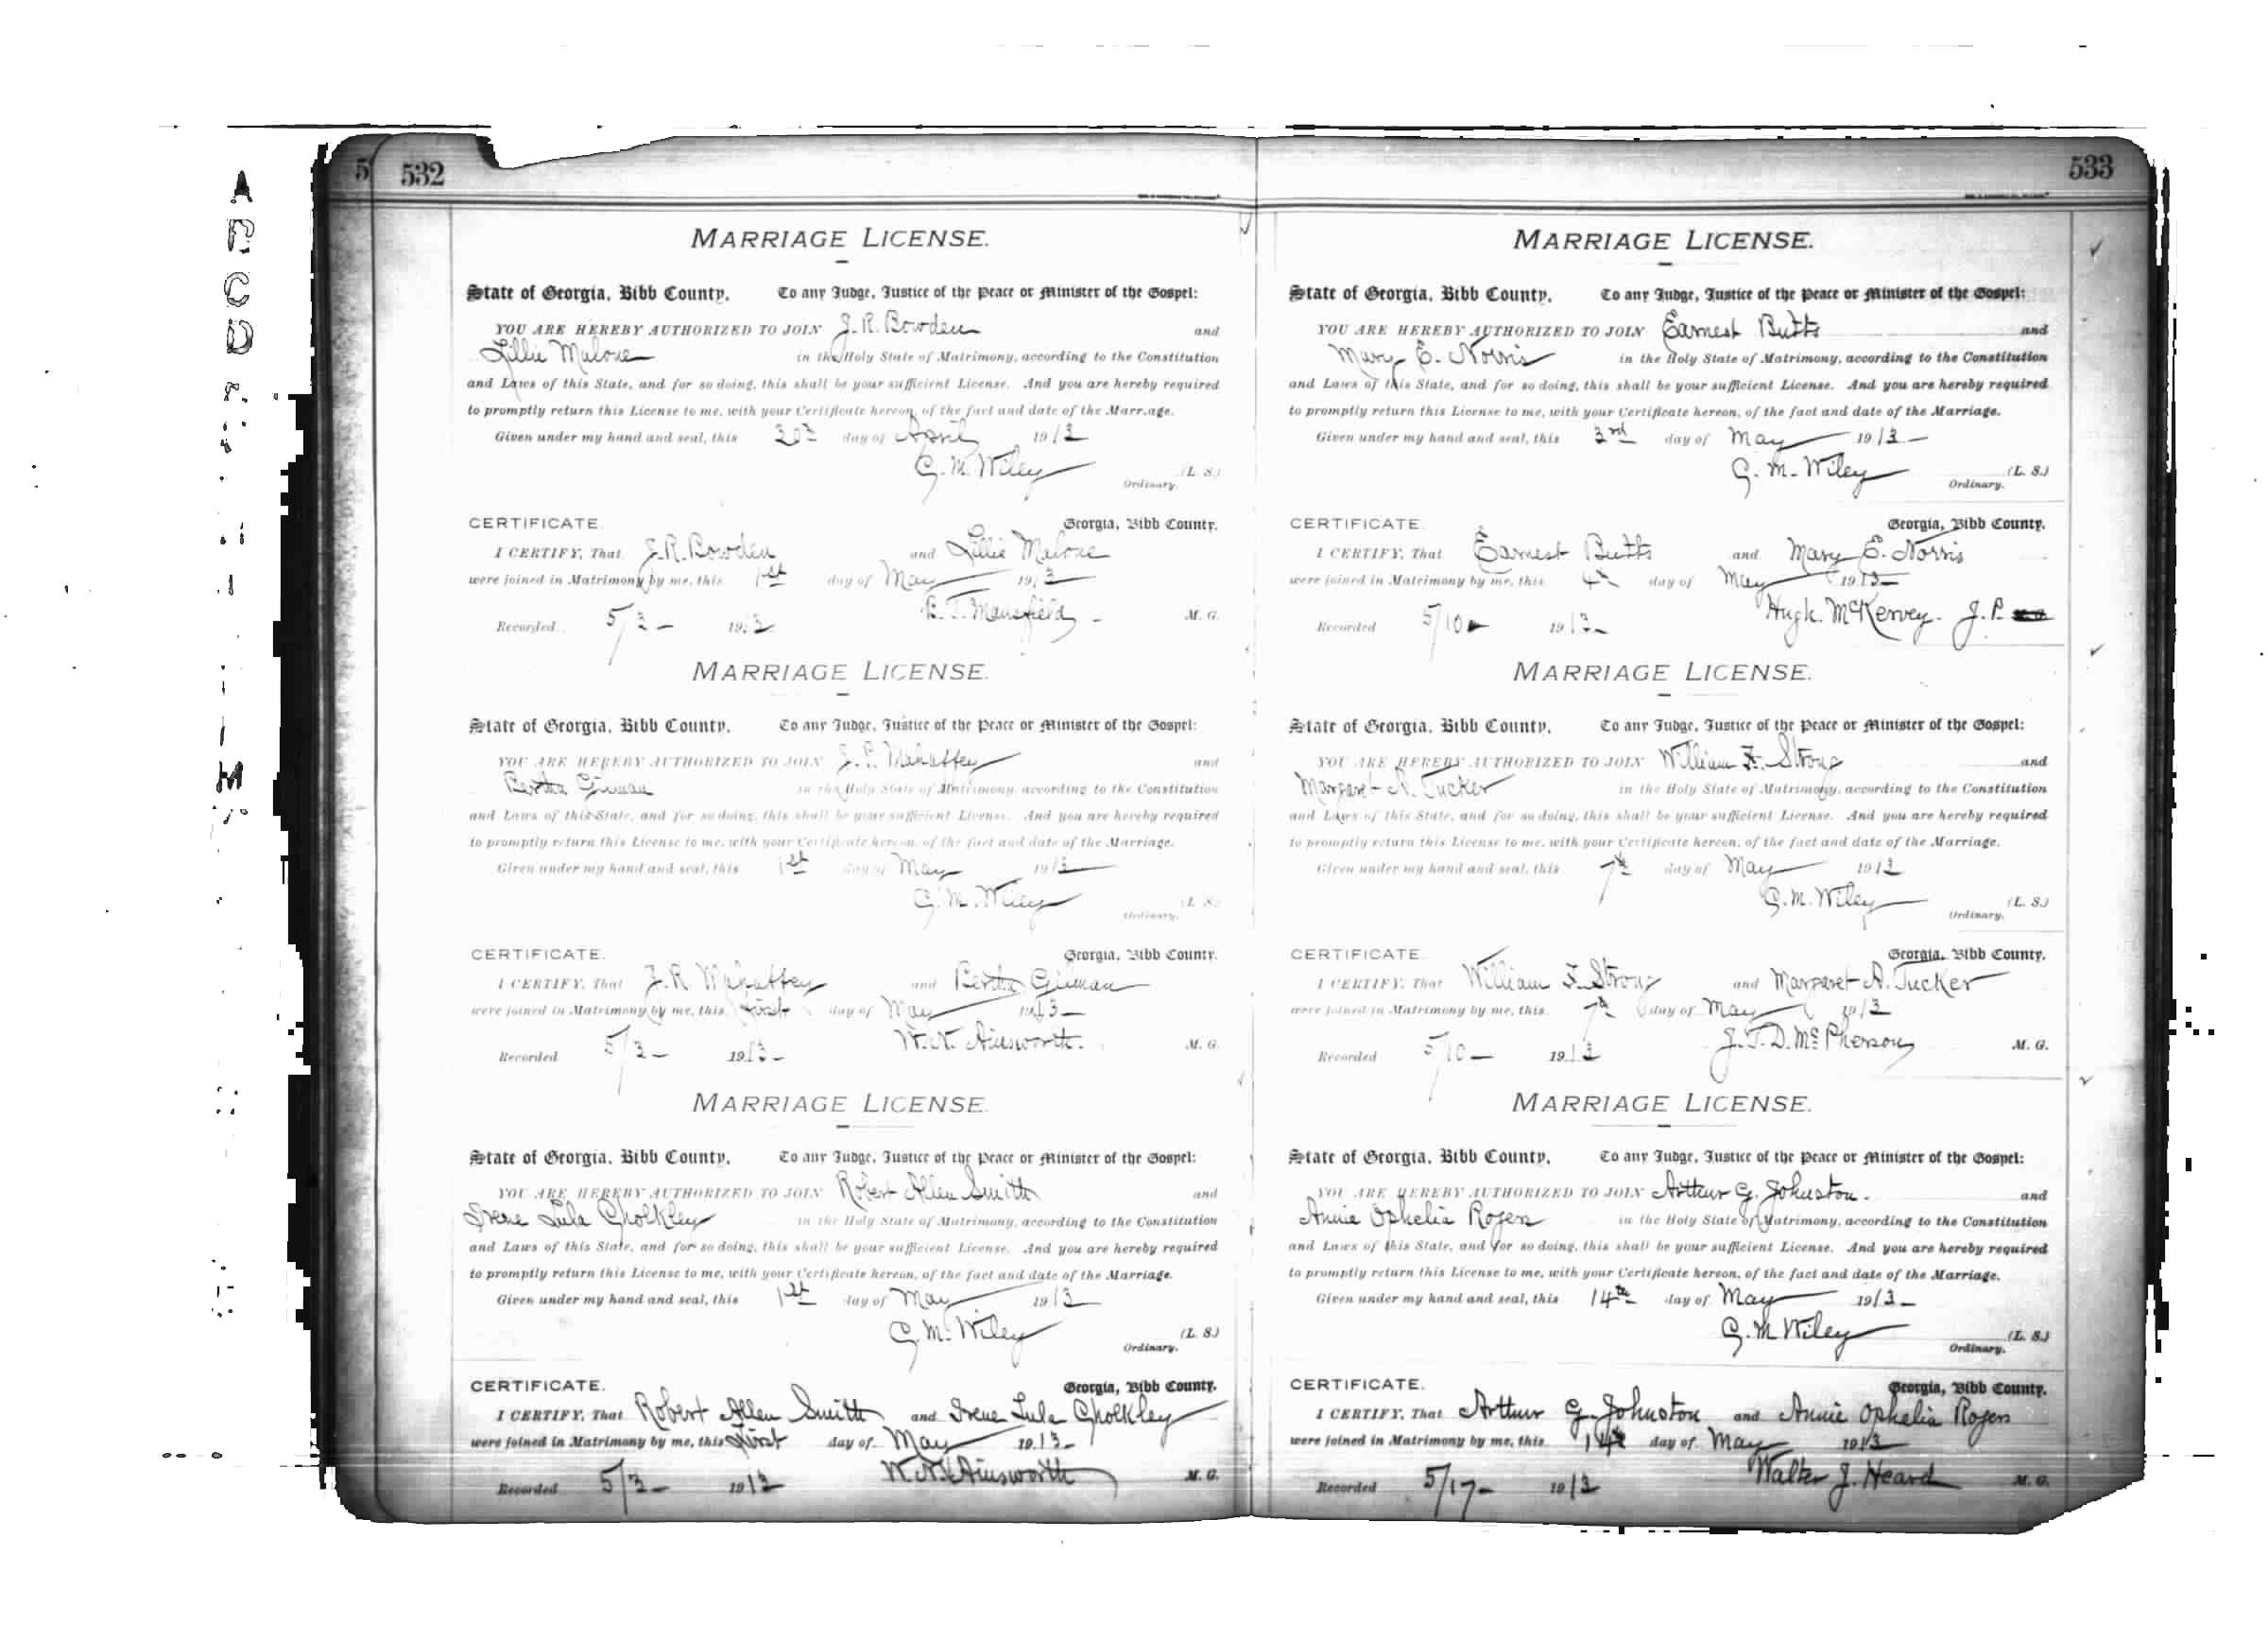 532
MARRIAGE LICENSE.
State of Georgia, Bibb County. To any Judge, Justice of the Peace or Minister of the Gospel:
YOU ARE HEREBY AUTHORIZED TO JOIN J. R. Bowden and
Lillie Malone in the Holy State of Matrimony, according to the Constitution
and Laws of this State, and for so doing, this shall be your sufficient License. And you are hereby required
to promptly return this License to me, with your Certificate hereon, of the fact and date of the Marriage.
Given under my hand and seal, this 30th day of April 1913
G. M. Wiley (L. S.)
Ordinary.
CERTIFICATE. Georgia, Bibb County.
I CERTIFY, That J. R. Bowden and Lillie Malone
were joined in Matrimony by me, this 1st day of May 1913
Mansfield M. G.
Recorded 5/3 1913
MARRIAGE LICENSE.
State of Georgia, Bibb County. To any Judge, Justice of the Peace or Minister of the Gospel:
YOU ARE HEREBY AUTHORIZED TO JOIN Mahaffey and
Bertha in the Holy State of Matrimony, according to the Constitution
and Laws of this State, and for so doing, this shall be your sufficient License. And you are hereby required
to promptly return this License to me, with your Certificate hereon, of the fact and date of the Marriage.
Given under my hand and seal, this 1st day of May 1913
G. M. Wiley (L. S.)
Ordinary.
CERTIFICATE. Georgia, Bibb County.
I CERTIFY, That J. R. Mahaffey and Bertha
were joined in Matrimony by me, this first day of May 1913
W. N. Ainsworth. M. G.
Recorded 5/3 1913
MARRIAGE LICENSE.
State of Georgia, Bibb County. To any Judge, Justice of the Peace or Minister of the Gospel:
YOU ARE HEREBY AUTHORIZED TO JOIN Robert Allen Smith and
Irene Lula Cholkley in the Holy State of Matrimony, according to the Constitution
and Laws of this State, and for so doing, this shall be your sufficient License. And you are hereby required
to promptly return this License to me, with your Certificate hereon, of the fact and date of the Marriage.
Given under my hand and seal, this 1st day of May 1913
G. M. Wiley (L. S.)
Ordinary.
CERTIFICATE. Georgia, Bibb County.
I CERTIFY, That Robert Allen Smith and Irene Lula Cholkley
were joined in Matrimony by me, this first day of May 1913
W. N. Ainsworth M. G.
Recorded 5/3 1913
533
MARRIAGE LICENSE.
State of Georgia, Bibb County. To any Judge, Justice of the Peace or Minister of the Gospel:
YOU ARE HEREBY AUTHORIZED TO JOIN Earnest Butts and
Mary E. Norris in the Holy State of Matrimony, according to the Constitution
and Laws of this State, and for so doing, this shall be your sufficient License. And you are hereby required
to promptly return this License to me, with your Certificate hereon, of the fact and date of the Marriage.
Given under my hand and seal, this 3rd day of May 1913
G. M. Wiley (L. S.)
Ordinary.
CERTIFICATE. Georgia, Bibb County.
I CERTIFY, That Earnest Butts and Mary E. Norris
were joined in Matrimony by me, this 4th day of May 1913
Hugh McKervey. J. P.
Recorded 5/10 1913
MARRIAGE LICENSE.
State of Georgia, Bibb County. To any Judge, Justice of the Peace or Minister of the Gospel:
YOU ARE HEREBY AUTHORIZED TO JOIN William F. Strong and
Margaret A. Tucker in the Holy State of Matrimony, according to the Constitution
and Laws of this State, and for so doing, this shall be your sufficient License. And you are hereby required
to promptly return this License to me, with your Certificate hereon, of the fact and date of the Marriage.
Given under my hand and seal, this 7th day of May 1913
G. M. Wiley (L. S.)
Ordinary.
CERTIFICATE. Georgia, Bibb County.
I CERTIFY, That William F. Strong and Margaret A. Tucker
were joined in Matrimony by me, this 7th day of May 1913
J. T. D. McPherson M. G.
Recorded 5/10 1913
MARRIAGE LICENSE.
State of Georgia, Bibb County. To any Judge, Justice of the Peace or Minister of the Gospel:
YOU ARE HEREBY AUTHORIZED TO JOIN Arthur G. Johnston. and
Annie Ophelia Rogers in the Holy State of Matrimony, according to the Constitution
and Laws of this State, and for so doing, this shall be your sufficient License. And you are hereby required
to promptly return this License to me, with your Certificate hereon, of the fact and date of the Marriage.
Given under my hand and seal, this 14th day of May 1913
G. M. Wiley (L. S.)
Ordinary.
CERTIFICATE. Georgia, Bibb County.
I CERTIFY, That Arthur G. Johnston and Annie Ophelia Rogers
were joined in Matrimony by me, this 14th day of May 1913
Walter J. Heard M. G.
Recorded 5/17 1913